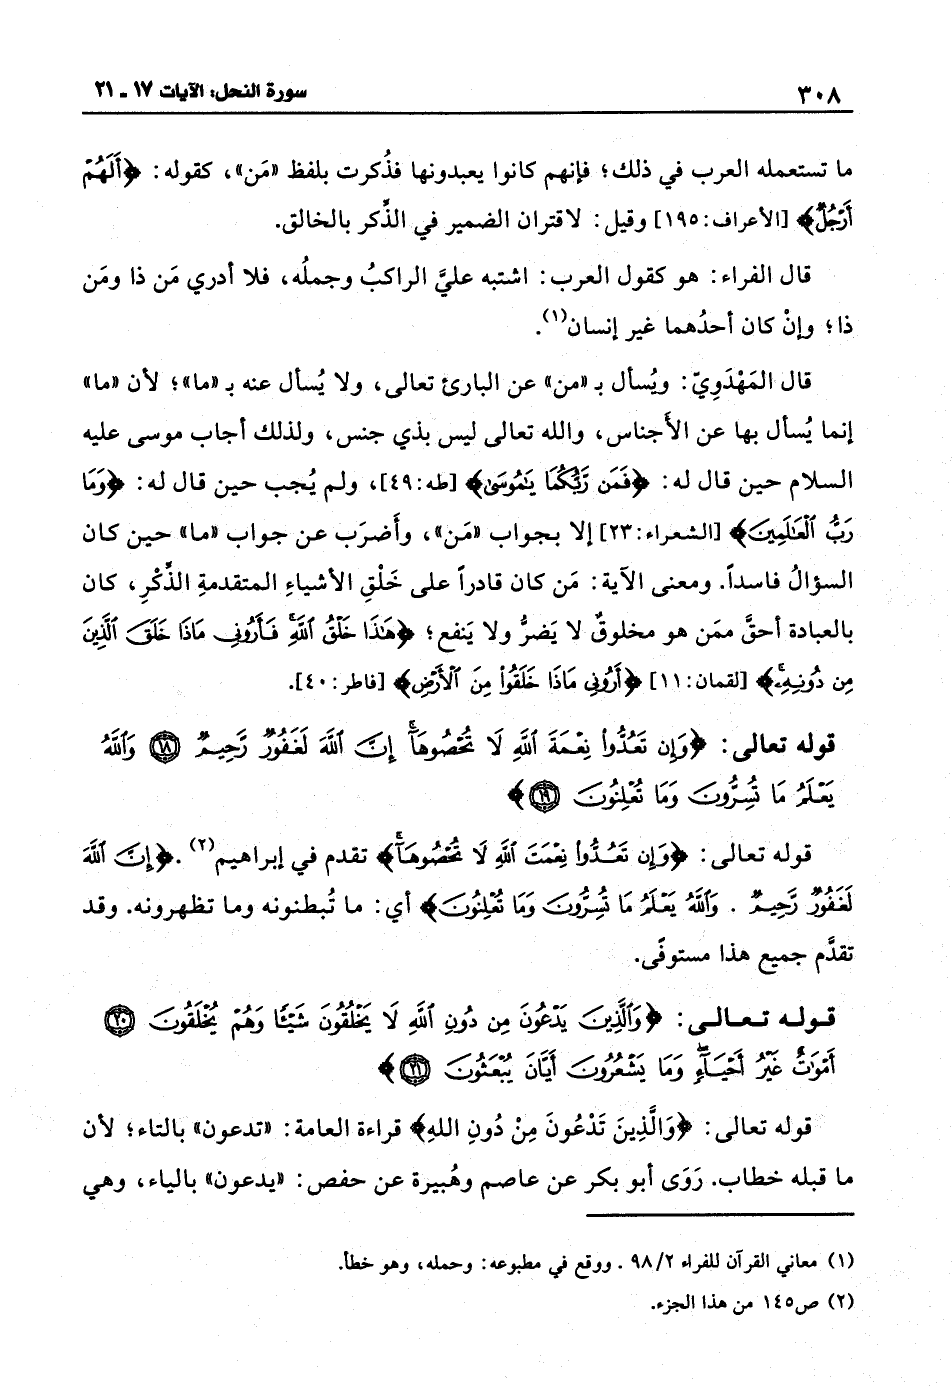 ٣٠٨ سورة النحل: الآيات ١٧ - ٢١
ما تستعمله العرب في ذلك؛ فإنهم كانوا يعبدونها فذُكرت بلفظ «مَن»، كقوله: ﴿أَلَهُمْ
أَرْجُلٌ﴾ [الأعراف:١٩٥] وقيل: لاقتران الضمير في الذِّكر بالخالق.
قال الفراء: هو كقول العرب: اشتبه عليَّ الراكبُ وجملُه، فلا أدري مَن ذا ومَن
ذا؛ وإنْ كان أحدُهما غير إنسان(١).
قال المَهْدَوِيّ: ويُسأل بـ «من» عن البارئ تعالى، ولا يُسأل عنه بـ «ما»؛ لأن «ما»
إنما يُسأل بها عن الأجناس، والله تعالى ليس بذي جنس، ولذلك أجاب موسى عليه
السلام حين قال له: ﴿فَمَن رَّبُّكُمَا يَٰمُوسَىٰ﴾ [طه:٤٩]، ولم يُجب حين قال له: ﴿وَمَا
رَبُّ ٱلْعَٰلَمِينَ﴾ [الشعراء:٢٣] إلا بجواب «مَن»، وأضرَب عن جواب «ما» حين كان
السؤالُ فاسداً. ومعنى الآية: مَن كان قادراً على خَلْقِ الأشياءِ المتقدمةِ الذِّكْرِ، كان
بالعبادة أحقَّ ممَن هو مخلوقٌ لا يَضرُّ ولا يَنفع؛ ﴿هَٰذَا خَلْقُ ٱللَّهِ فَأَرُونِى مَاذَا خَلَقَ ٱلَّذِينَ
مِن دُونِهِۦ﴾ [لقمان:١١] ﴿أَرُونِى مَاذَا خَلَقُوا۟ مِنَ ٱلْأَرْضِ﴾ [فاطر:٤٠].
قوله تعالى: ﴿وَإِن تَعُدُّوا۟ نِعْمَةَ ٱللَّهِ لَا تُحْصُوهَآ ۗ إِنَّ ٱللَّهَ لَغَفُورٌ رَّحِيمٌ ١٨ وَٱللَّهُ
يَعْلَمُ مَا تُسِرُّونَ وَمَا تُعْلِنُونَ ١٩﴾
قوله تعالى: ﴿وَإِن تَعُدُّوا۟ نِعْمَتَ ٱللَّهِ لَا تُحْصُوهَآ﴾ تقدم في إبراهيم(٢). ﴿إِنَّ ٱللَّهَ
لَغَفُورٌ رَّحِيمٌ . وَٱللَّهُ يَعْلَمُ مَا تُسِرُّونَ وَمَا تُعْلِنُونَ﴾ أي: ما تُبطنونه وما تظهرونه. وقد
تقدَّم جميع هذا مستوفًى.
قوله تعالى: ﴿وَٱلَّذِينَ يَدْعُونَ مِن دُونِ ٱللَّهِ لَا يَخْلُقُونَ شَيْـًٔا وَهُمْ يُخْلَقُونَ ٢٠
أَمْوَٰتٌ غَيْرُ أَحْيَآءٍ وَمَا يَشْعُرُونَ أَيَّانَ يُبْعَثُونَ ٢١﴾
قوله تعالى: ﴿وَالَّذِينَ تَدْعُونَ مِنْ دُونِ اللهِ﴾ قراءة العامة: «تدعون» بالتاء؛ لأن
ما قبله خطاب. رَوَى أبو بكر عن عاصم وهُبيرة عن حفص: «يدعون» بالياء، وهي
(١) معاني القرآن للفراء ٩٨/٢ . ووقع في مطبوعه: وحمله، وهو خطأ.
(٢) ص١٤٥ من هذا الجزء.